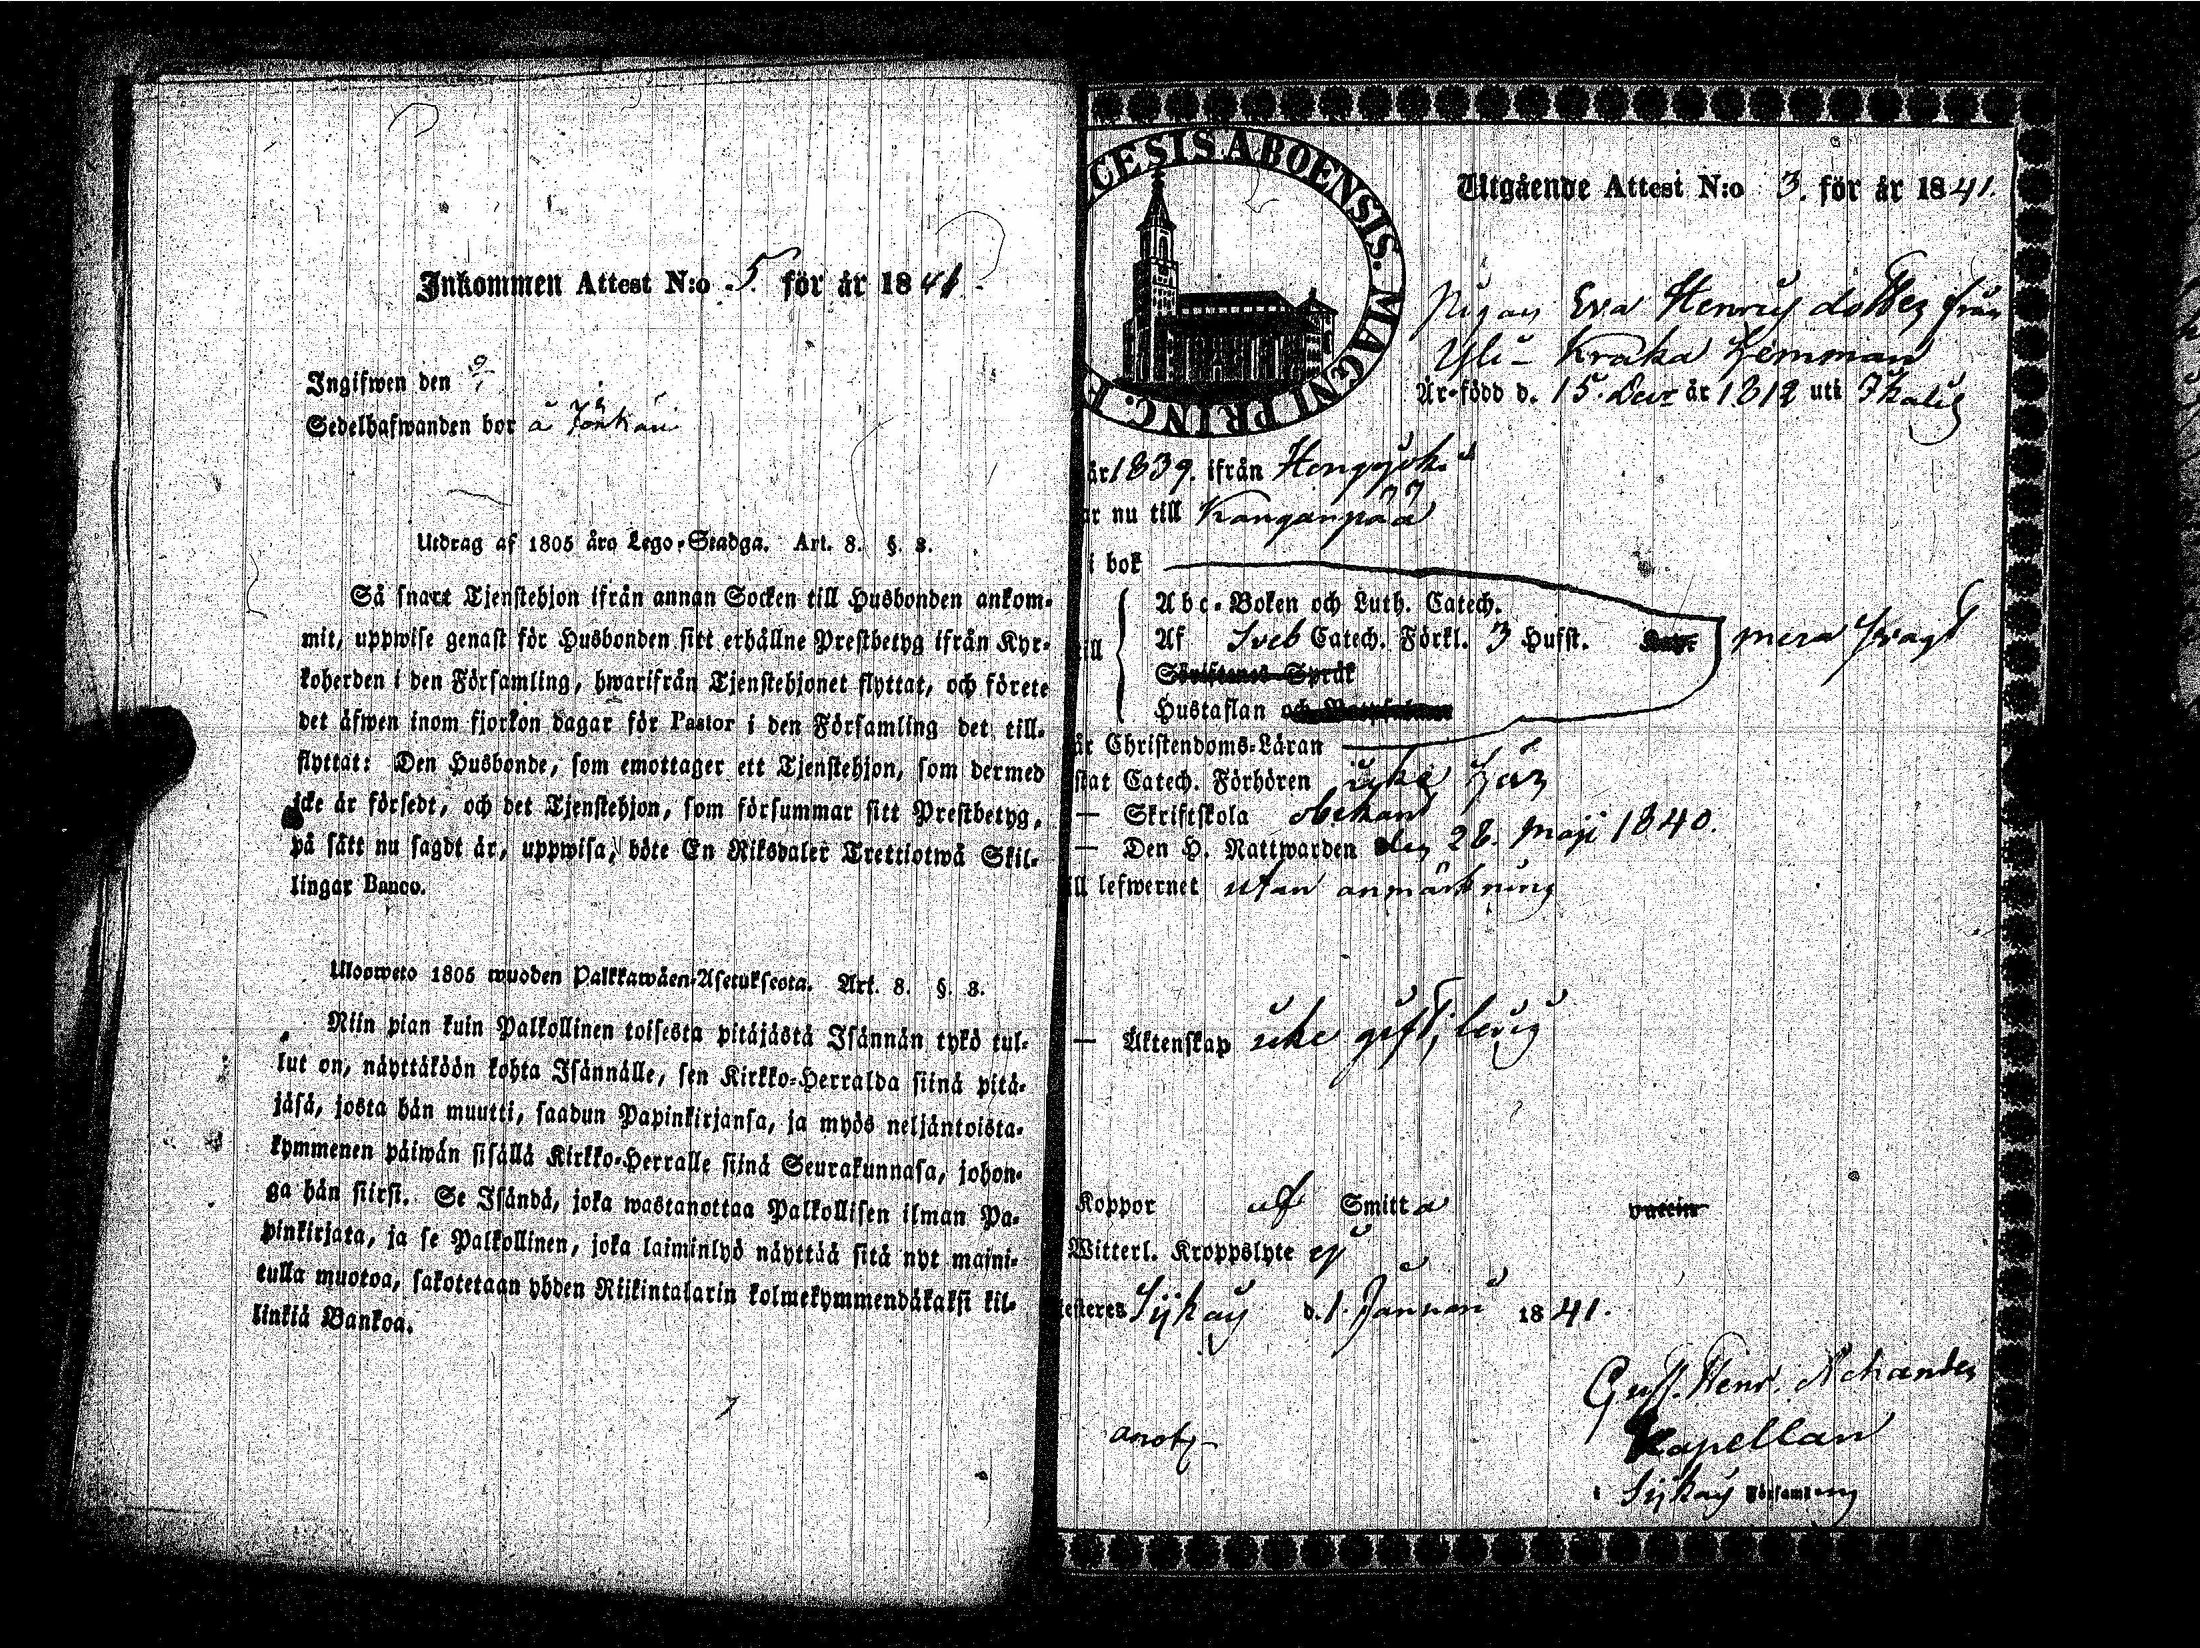 Inkommen Attest N:o 5 för år 1841.
Ingifwen den 9/1
Sedelhafwanden bor å
Utdrag af 1805 års Lego-Stadga. Art. 8. §. 8.
Så snart Tjenstehjon ifrån annan Socken till Husbonden ankom-
mit, uppwise genast för Husbonden sitt erhållne Prestbetyg ifrån Kyr-
koherden i den Församling, hwarifrån Tjenstehjonet flyttat, och förete
det äfwen inom fjorton dagar för Pastor i den Församling det till-
flyttat: Den Husbonde, som emottager ett Tjenstehjon, som dermed
icke är försedt, och det Tjenstehjon, som försummar sitt Prestbetyg,
på sätt nu sagdt är, uppwisa, böte En Riksdaler Trettiotwå Skil-
lingar Banco.
Ulosweto 1805 wuoden Palkkawäen-Asetuksesta. Art. 8. §. 8.
Niin pian kuin Palkollinen toisesta pitäjästä Isännän tykö tul-
lut on, näyttäköön kohta Isännälle, sen Kirkko-Herralda siinä pitä-
jäsä, josta hän muutti, saadun Papinkirjansa, ja myös neljäntoista-
kymmenen päiwän sisällä Kirkko-Herralle siinä Seurakunnasa, johon-
ga hän siirsi. Se Isändä, joka wastanottaa Palkollisen ilman Pa-
pinkirjata, ja se Palkollinen, joka laiminlyö näyttää sitä nyt maini-
tulla muotoa, sakotetaan yhden Riikintalarin kolmekymmendäkaksi kil-
linkiä Bankoa.
CESIS ABOENSIS. MAGNI PRINC. F
Utgående Attest N:o 3. för år 1841.
Pigan Eva Henricsdotter från
Yli-Kraka hemman
Är född d. 15. Decr år 1812 uti Ikalis
år 1839. ifrån Hongojoki
ar nu till Kanganpää
i bok
Abc-Boken och Luth. Catech.
ill Af Sveb Catech. Förkl. 3 Hufst. mera svagt
Skriftenes Språk
Hustaflan och
år Christendoms-Läran
stat Catech. Förhören icke här
— Skriftskola obekant
— Den H. Nattwarden den 28. Maji 1840.
ill lefwernet utan anmärkning
— Äktenskap icke gift, ledig
Koppor af Smitta vaccin
Witterl. Kroppslyte ej
testeres Sijkais d. 1. Januari 1841.
Gust. Henr. Achander
Kapellan
anoty
i Sijkais Församling